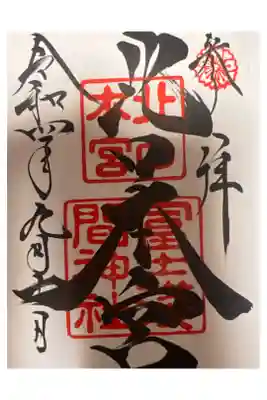 奉拝
北口本宮
北口
本宮
冨士淺
間神社
令和四年九月十一日